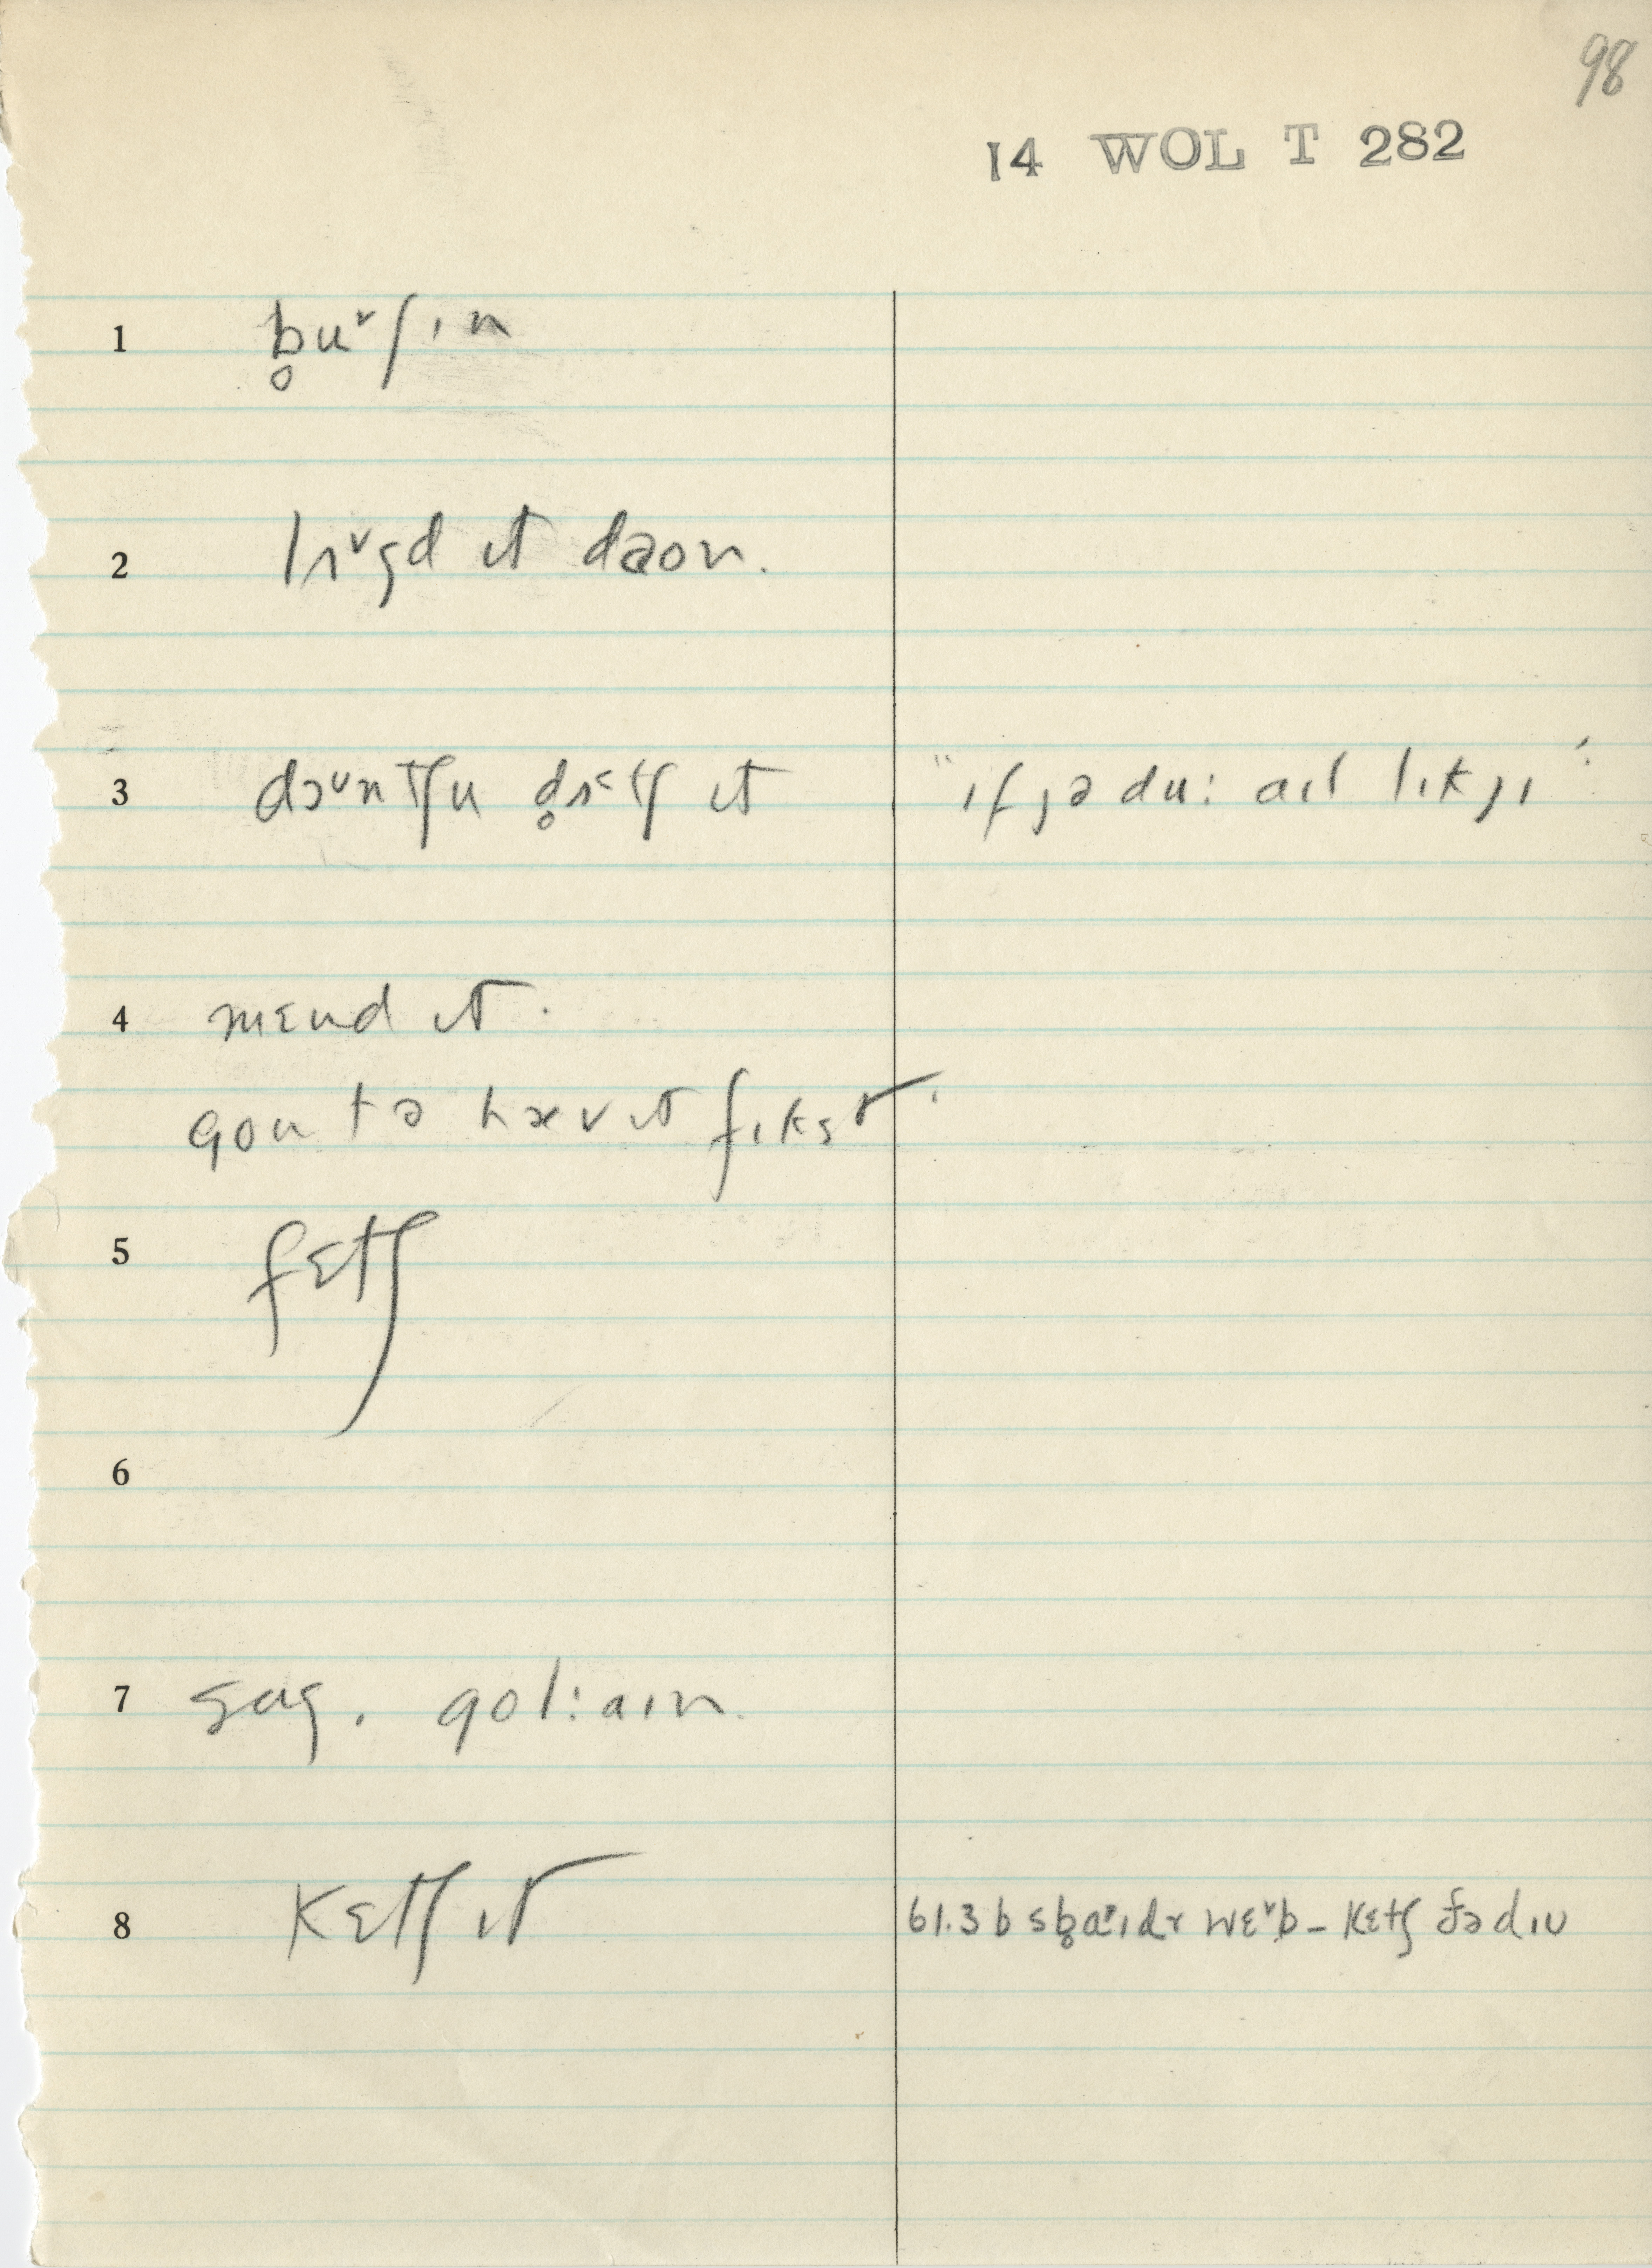 98
14 WOL T 282
1 b̥u˅ʃɪn
2 lʌ˅gd ɪt daon.
3 dɔ˅ntʃu d̥ʌ˂tʃ ɪt "ɪf jə du: aɪl lɪk jɪ"
4 mɛnd ɪt.
gou tə hæv ɪt fɪkst.
5 fɛtʃ
6
7 sag. gol:aɪn.
8 kɛtʃ ɪt 61.3 b sb̥aɪdɚ wɛ˅b – kɛtʃ